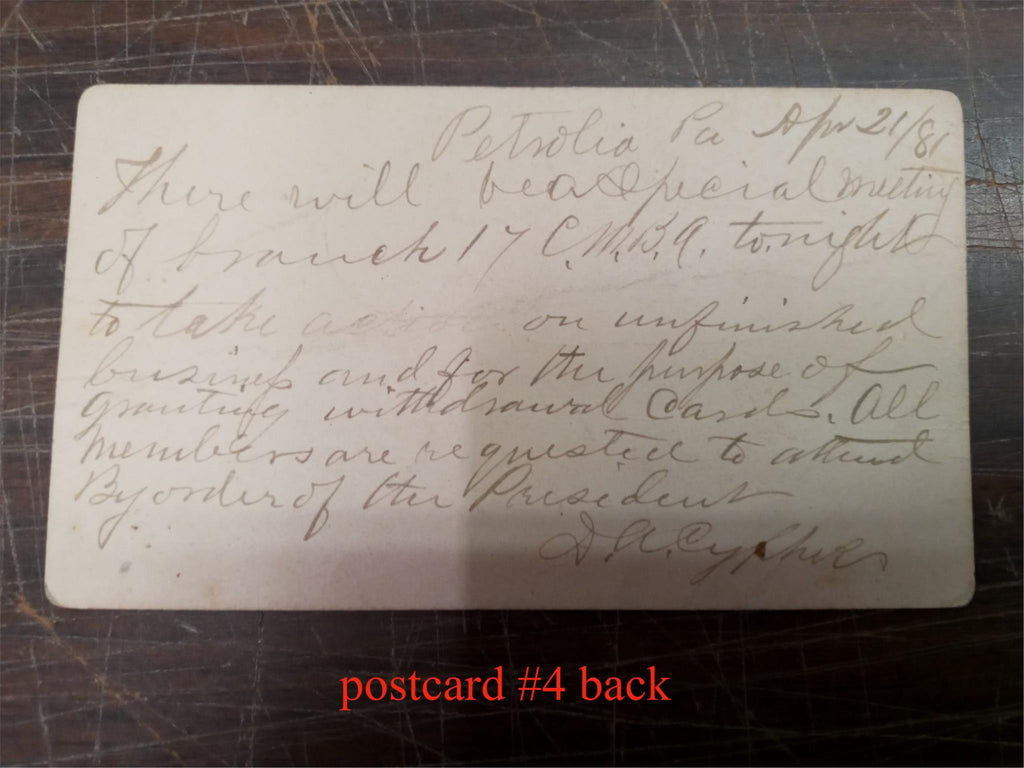 Petrolia Pa Apr 21/81
There will be a Special meeting
of branch 17 C.M.B.A. to.night
to take action on unfinished
business and for the purpose of
granting withdrawal Cards. All
members are requested to attend
By order of the President
D. A. Cyphers
postcard #4 back